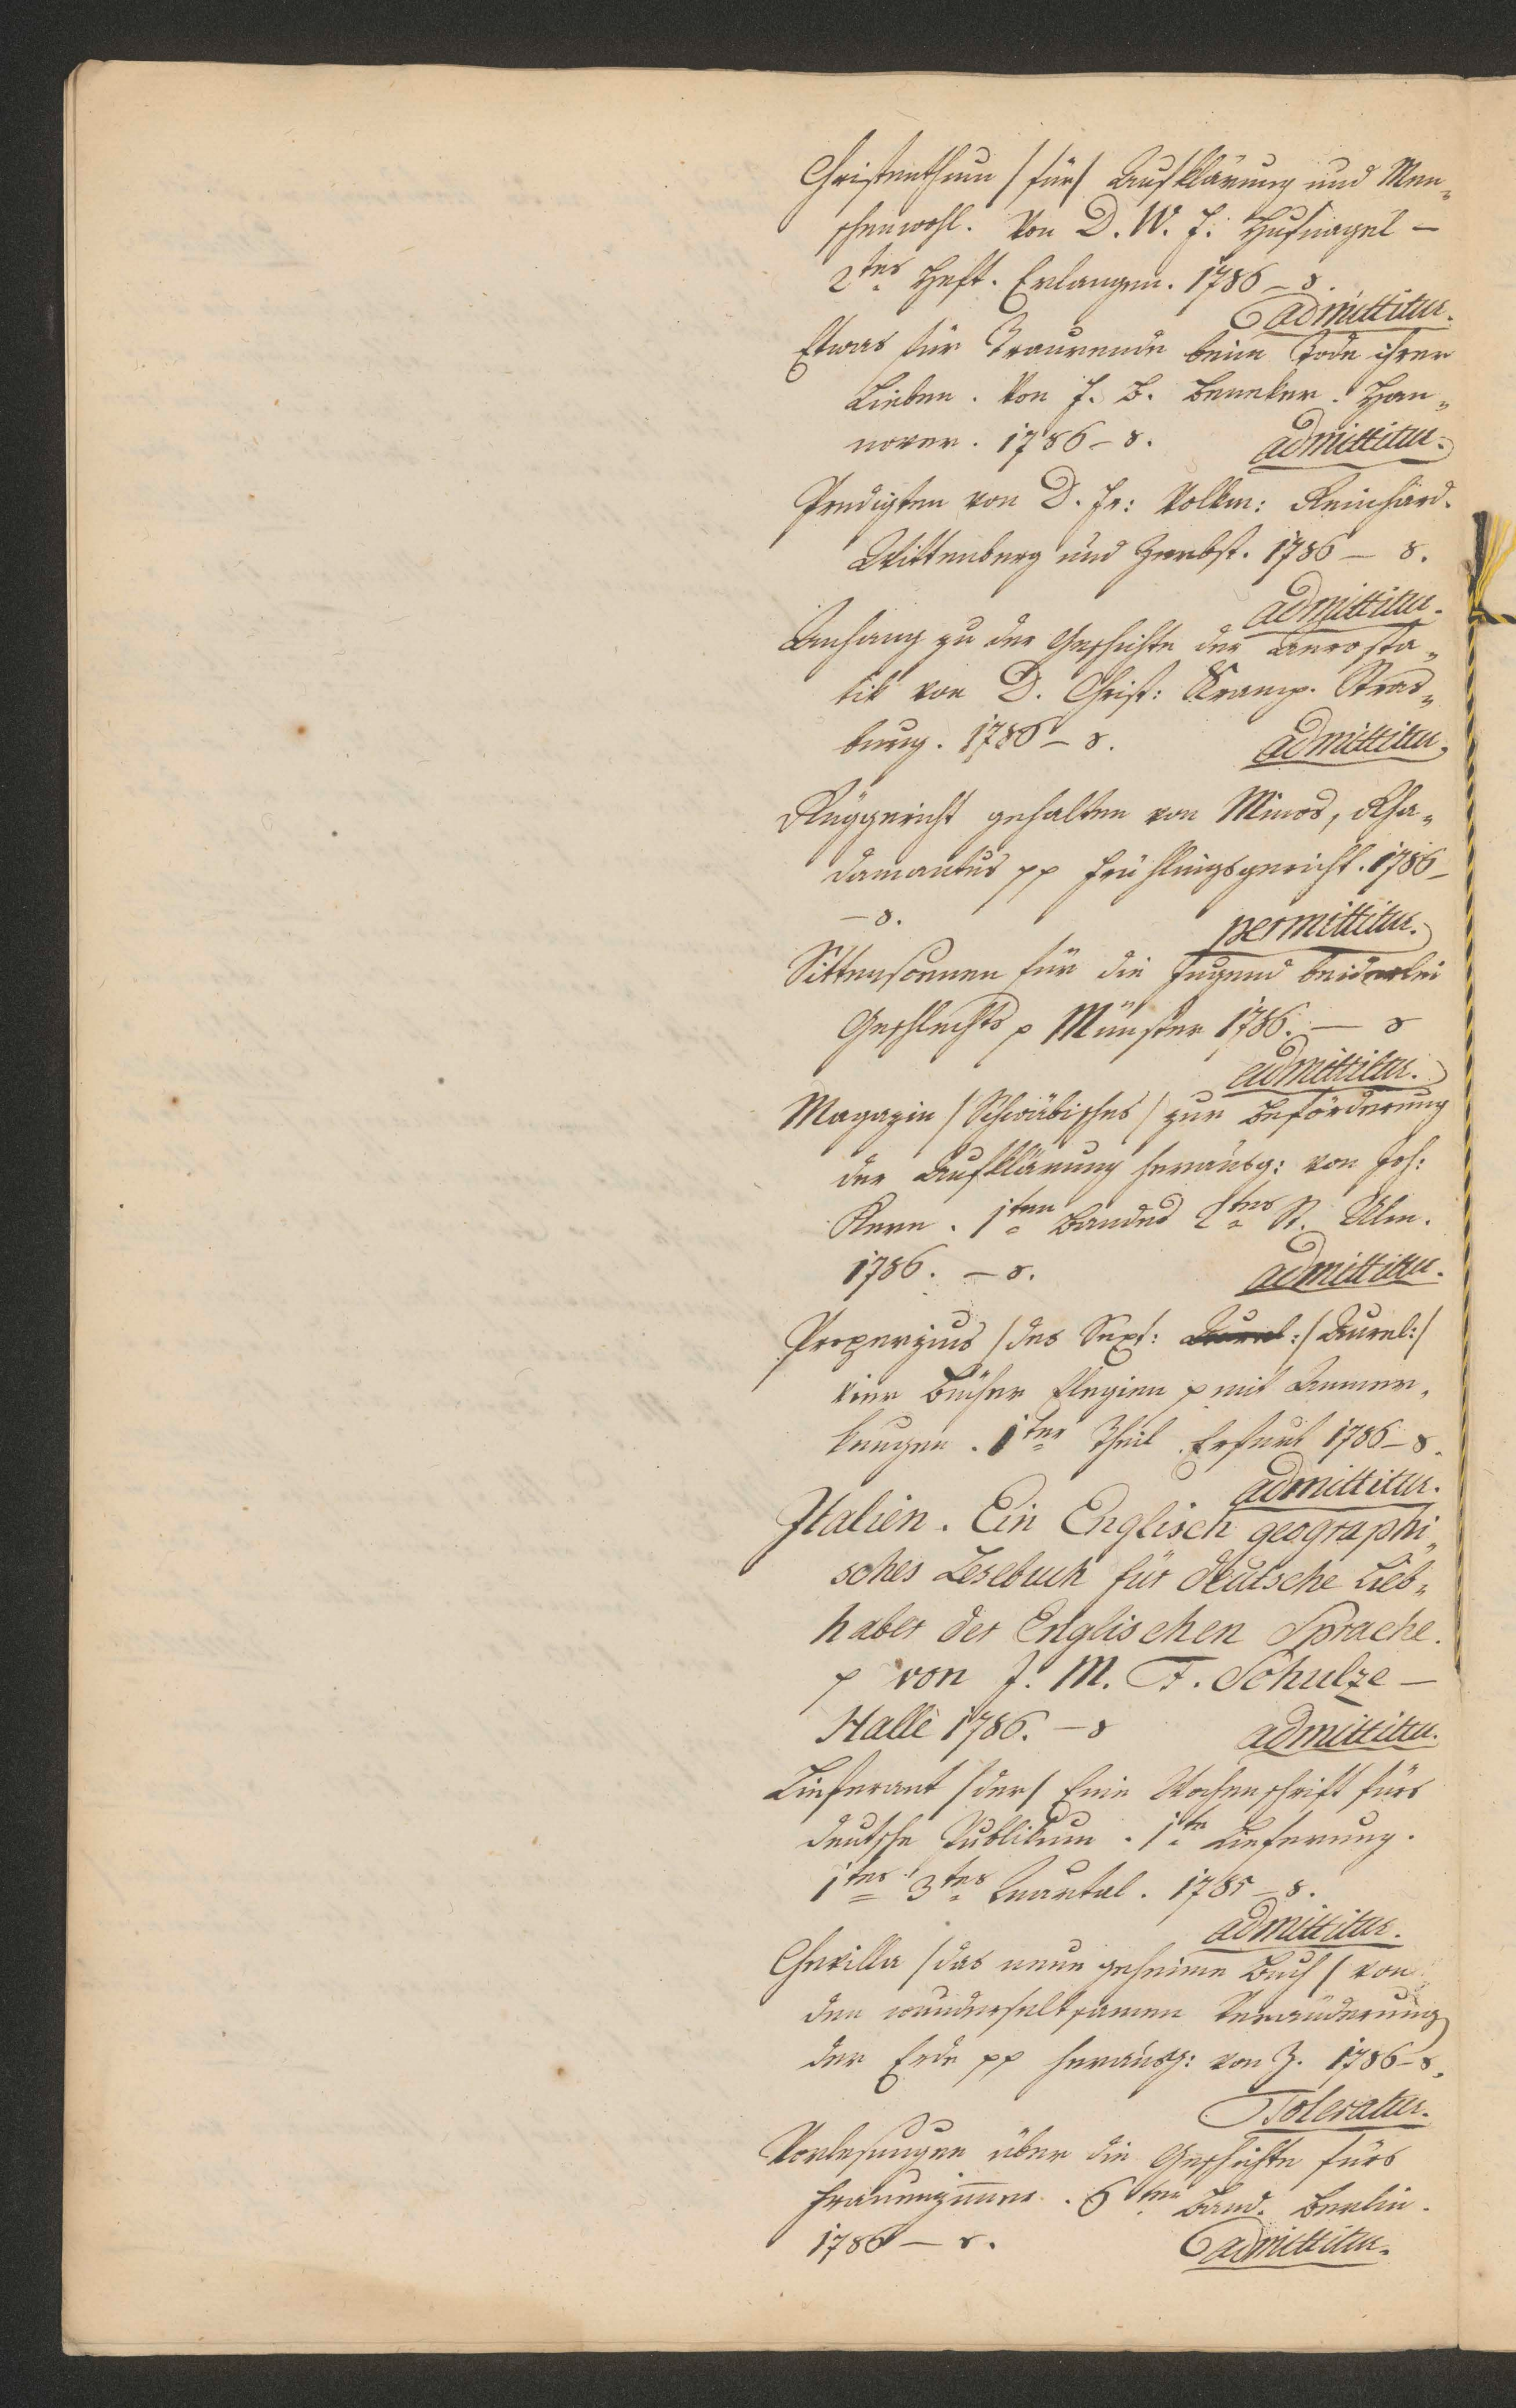 Christenthum /für/ Aufklärung und Men„
schenwohl. Von D. W. F. Hufnagel —
2tes Heft. Erlangen. 1786 – 8.
admittitur.
Etwas für Traurende beim Tode ihrer
Lieben. Von J. B. Beneken. Han„
nover. 1786 – 8. admittitur.
Predigten von D. Fr: Volkm: Reinhard.
Wittenberg und Zerbst. 1786 — 8.
admittitur.
Anhang zu der Geschichte der Aerosta„
tik von D. Christ: Kramp. Stras„
burg. 1786 – 8. admittitur.
Rüggericht gehalten von Minos, Rha„
damantus pp Frühlingsgericht. 1786 –
– 8. permittitur.
Sittenscenen für die Jugend beiderlei
Geschlechts p Münster 1786. — 8
admittitur.
Magazin /Schwäbisches/ zur Beförderung
der Aufklärung herausg: von Joh:
Kern. 1ten Bandes 2tes St. Ulm.
1786. – 8. admittitur.
Properzius /des Sext: Aurel:/ Aurel:/
vier Bücher Elegien p mit Anmer„
kungen. 1ter Theil. Erfurt 1786 – 8.
admittitur.
Italien. Ein Englisch geographi„
sches Lesebuch für deutsche Lieb„
haber der Englischen Sprache.
p von J. M. F. Schulze —
Halle 1786. – 8 admittitur.
Lieferant /der/ Eine Wochenschrift fürs
deutsche Publikum. 1te Lieferung.
1tes 3tes Quartal. 1785 – 8.
admittitur.
Chevilla /das neue geheime Buch/ von
den wunderseltsamen Veränderung
der Erde pp herausg: von Z. 1786 – 8.
Toleratur.
Vorlesungen über die Geschichte fürs
Frauenzimmer. 6ter Band. Berlin.
1786 – 8. admittitur.